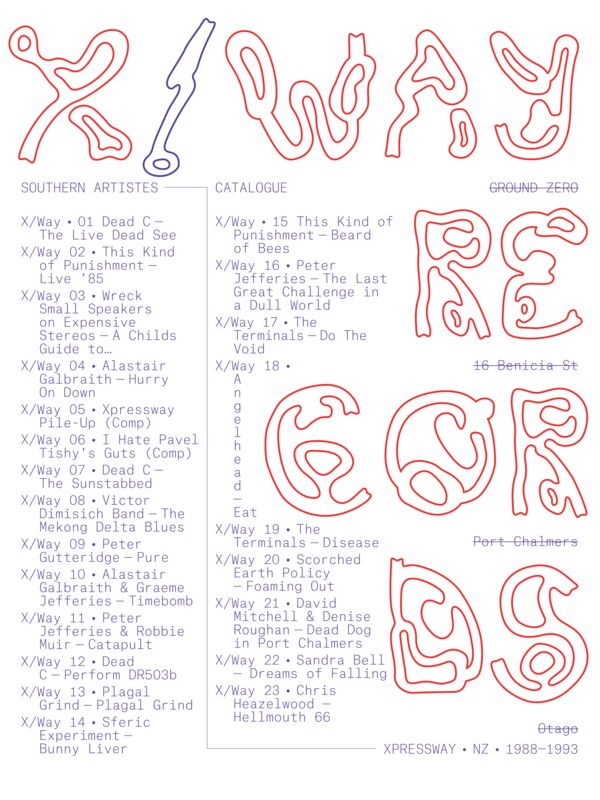 X/WAY
SOUTHERN ARTISTES
CATALOGUE
GROUND ZERO
X/Way • 01 Dead C –
The Live Dead See
X/Way 02 • This Kind
of Punishment –
Live ’85
X/Way 03 • Wreck
Small Speakers
on Expensive
Stereos – A Childs
Guide to…
X/Way 04 • Alastair
Galbraith – Hurry
On Down
X/Way 05 • Xpressway
Pile-Up (Comp)
X/Way 06 • I Hate Pavel
Tishy's Guts (Comp)
X/Way 07 • Dead C –
The Sunstabbed
X/Way 08 • Victor
Dimisich Band – The
Mekong Delta Blues
X/Way 09 • Peter
Gutteridge – Pure
X/Way 10 • Alastair
Galbraith & Graeme
Jefferies – Timebomb
X/Way 11 • Peter
Jefferies & Robbie
Muir – Catapult
X/Way 12 • Dead
C – Perform DR503b
X/Way 13 • Plagal
Grind – Plagal Grind
X/Way 14 • Sferic
Experiment –
Bunny Liver
X/Way • 15 This Kind of
Punishment – Beard
of Bees
X/Way 16 • Peter
Jefferies – The Last
Great Challenge in
a Dull World
X/Way 17 • The
Terminals – Do The
Void
X/Way 18 •
A
n
g
e
l
h
e
a
d
–
Eat
X/Way 19 • The
Terminals – Disease
X/Way 20 • Scorched
Earth Policy
– Foaming Out
X/Way 21 • David
Mitchell & Denise
Roughan – Dead Dog
in Port Chalmers
X/Way 22 • Sandra Bell
– Dreams of Falling
X/Way 23 • Chris
Heazelwood –
Hellmouth 66
RE
16 Benicia St
COR
Port Chalmers
DS
Otago
XPRESSWAY • NZ • 1988–1993